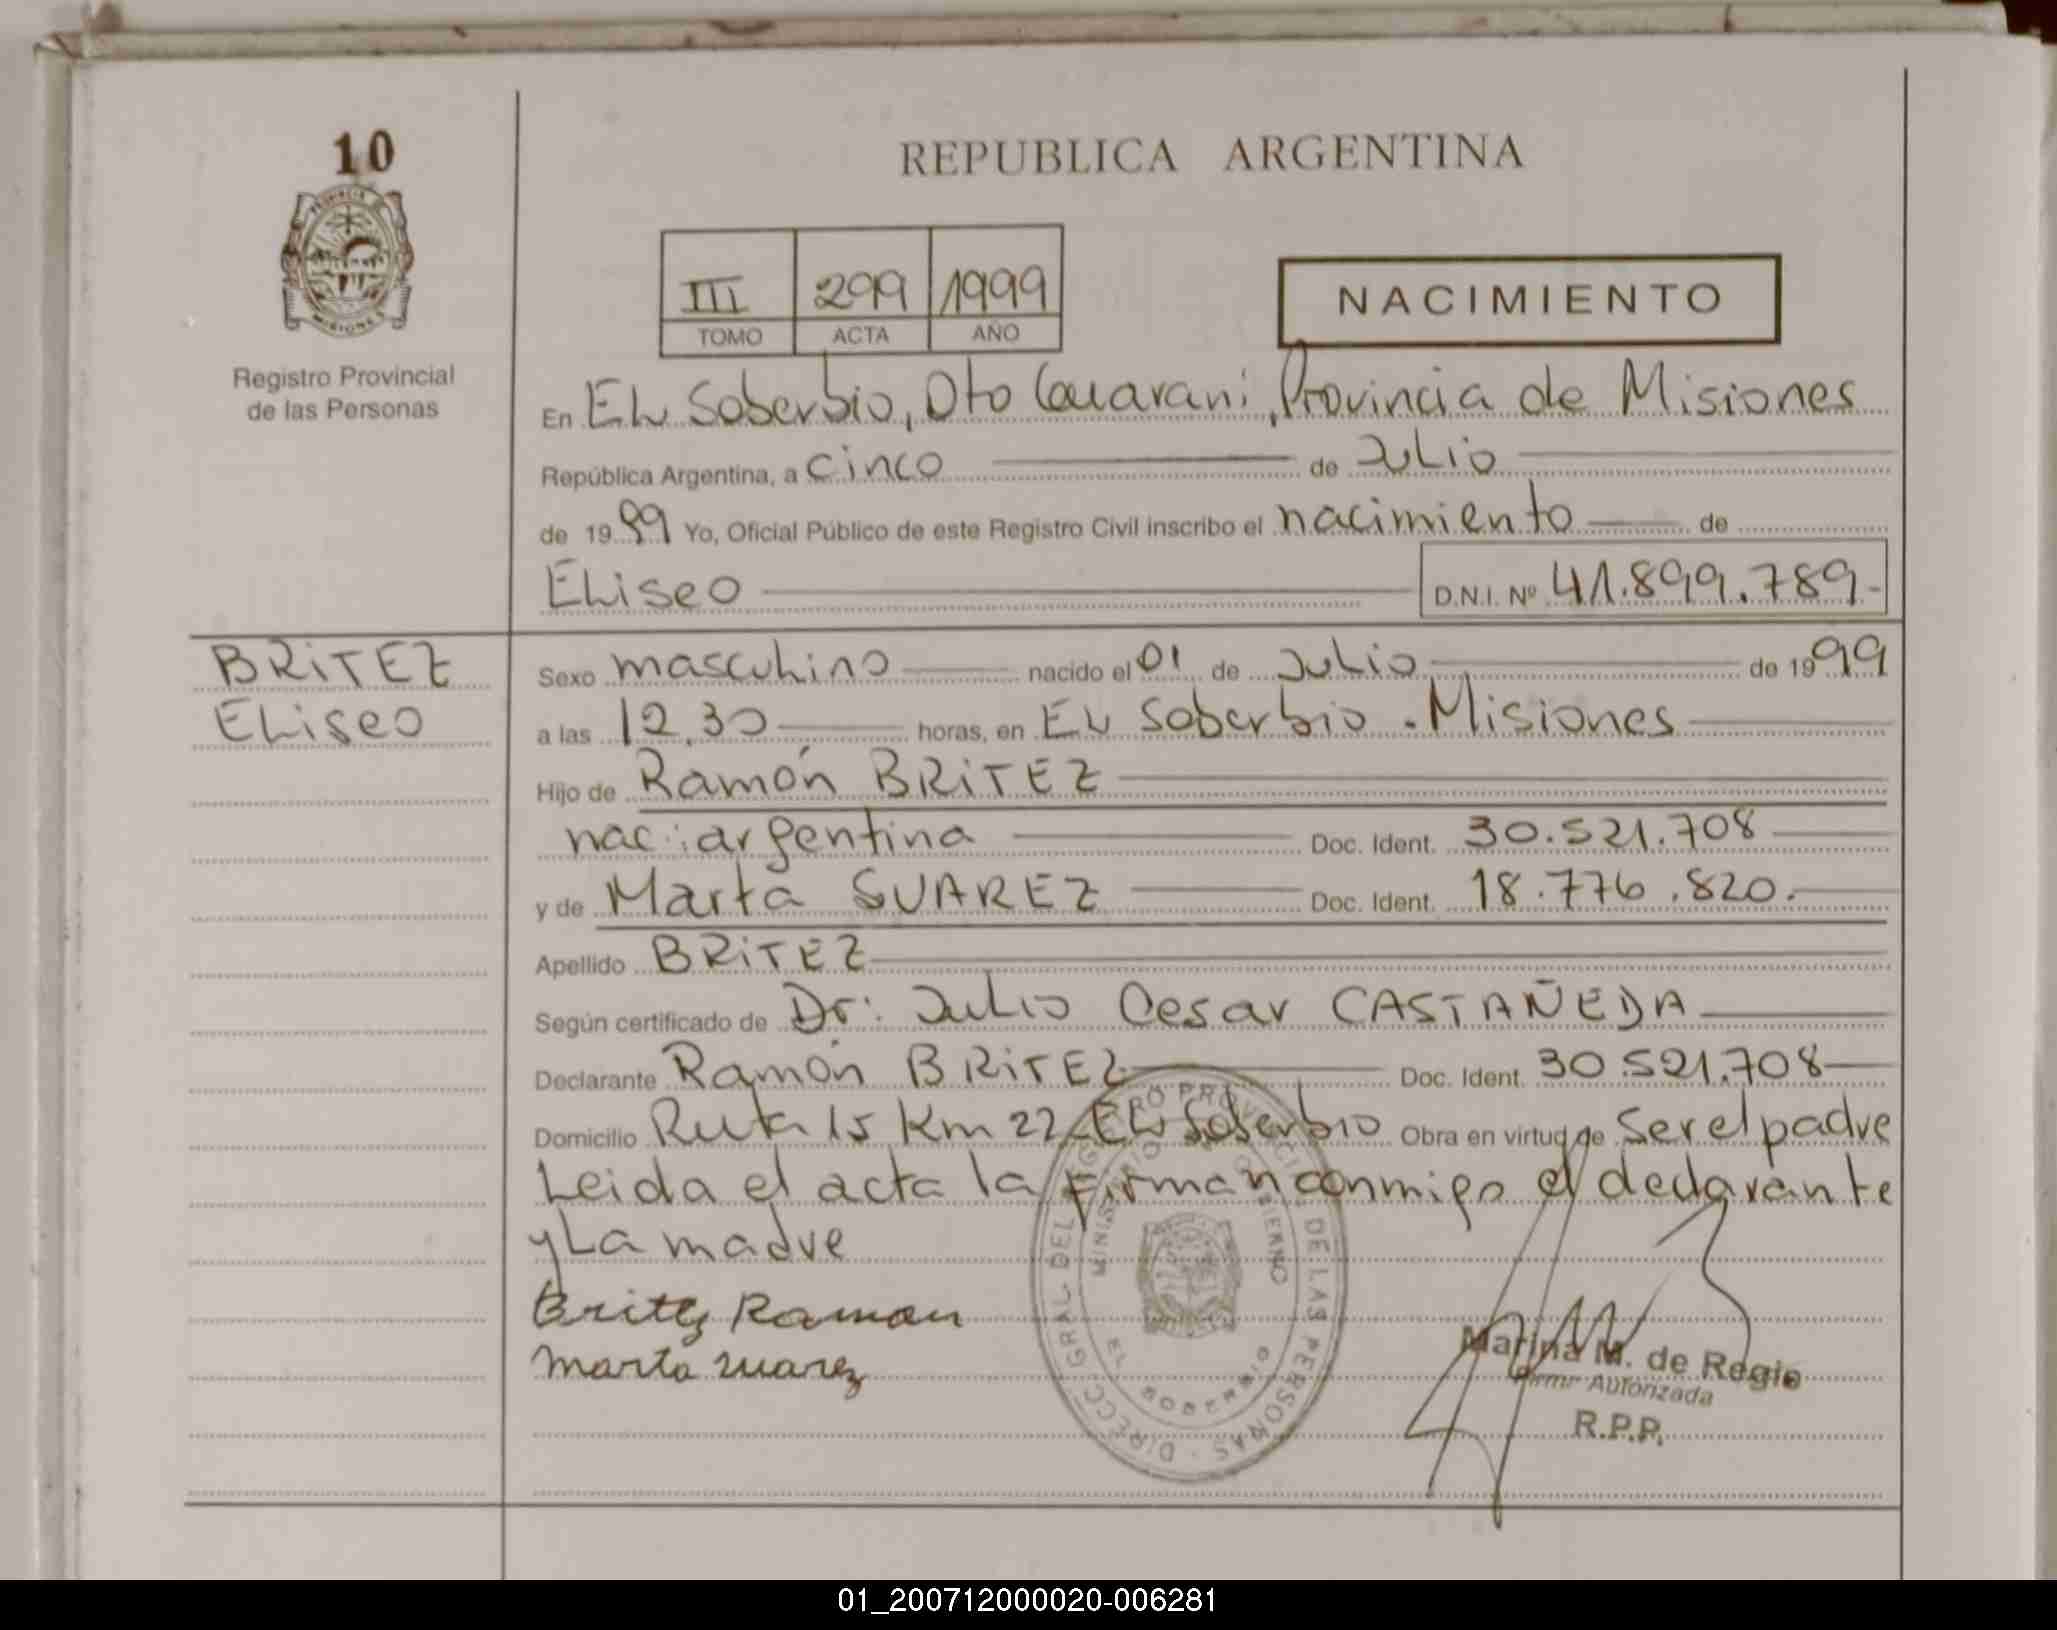 10
PROVINCIA DE
MISIONES
Registro Provincial
de las Personas
REPUBLICA ARGENTINA
III 299 1999
TOMO ACTA AÑO
NACIMIENTO
En EL Soberbio, Dto Guarani, Provincia de Misiones
República Argentina, a cinco de Julio
de 1999 Yo, Oficial Público de este Registro Civil inscribo el nacimiento de
ELiseo D.N.I. Nº 41.899.789-
BRiTEZ
ELiseo
Sexo mascuLino nacido el 01 de JuLio de 1999
a las 12.30 horas, en EL Soberbio - Misiones
Hijo de Ramón BRiTEZ
nac: argentina Doc. Ident. 30.521.708
y de Marta SUAREZ Doc. Ident. 18.776.820.
Apellido BRiTEZ
Según certificado de Dr: JuLio Cesar CASTAÑEDA
Declarante Ramón BRiTEZ Doc. Ident. 30.521.708
Domicilio Ruta 15 Km 22 EL Soberbio Obra en virtud de ser el padre
Leida el acta la firman conmigo el declarante
y La madre
Britez Ramon
Marta Suarez
DIRECC. GRAL. DEL REGISTRO PROVINCIAL DE LAS PERSONAS
MINISTERIO DE GOBIERNO
EL SOBERBIO
Marina M. de Regio
Firma Autorizada
R.P.P.
01_200712000020-006281